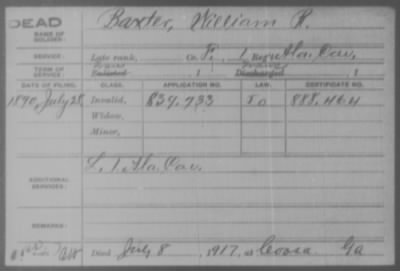 DEAD
NAME OF SOLDIER: Baxter, William R.
SERVICE: Late rank, Co. F, 1 Reg't Ala. Cav.
TERM OF SERVICE: Enlisted , 1 Discharged , 1
DATE OF FILING. CLASS. APPLICATION NO. LAW. CERTIFICATE NO.
1890, July 28, Invalid, 839,733 888,464
Widow,
Minor,
ADDITIONAL SERVICES: L. 1 Ala. Cav.
REMARKS:
Died July 8, 1917, at Coosa Ga